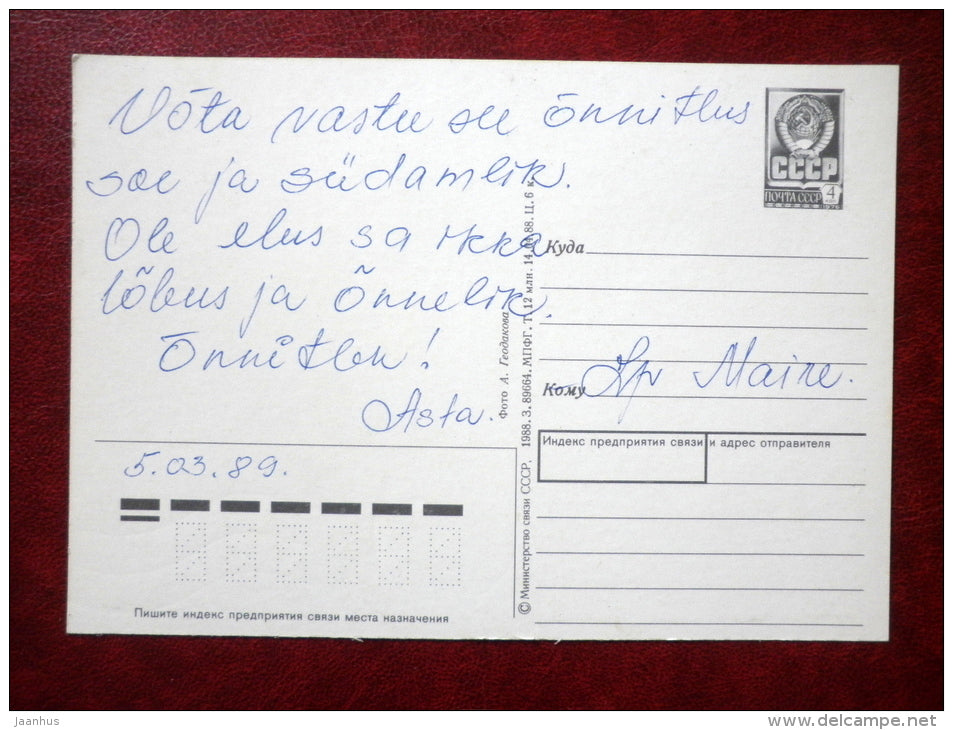 Võta vastu see õnnitlus
soe ja südamlik.
Ole elus sa ikka
lõbus ja õnnelik.
Õnnitlen!
Asta.
5.03.89.
Пишите индекс предприятия связи места назначения
© Министерство связи СССР. 1988. З. 89664. МПФГ. Т. 12 млн. 14. .88. Ц. 6 к.
Фото А. Геодакова
СССР
ПОЧТА СССР
4
Куда
Кому Lp Maire.
Индекс предприятия связи и адрес отправителя
jaanhus
www.delcampe.net